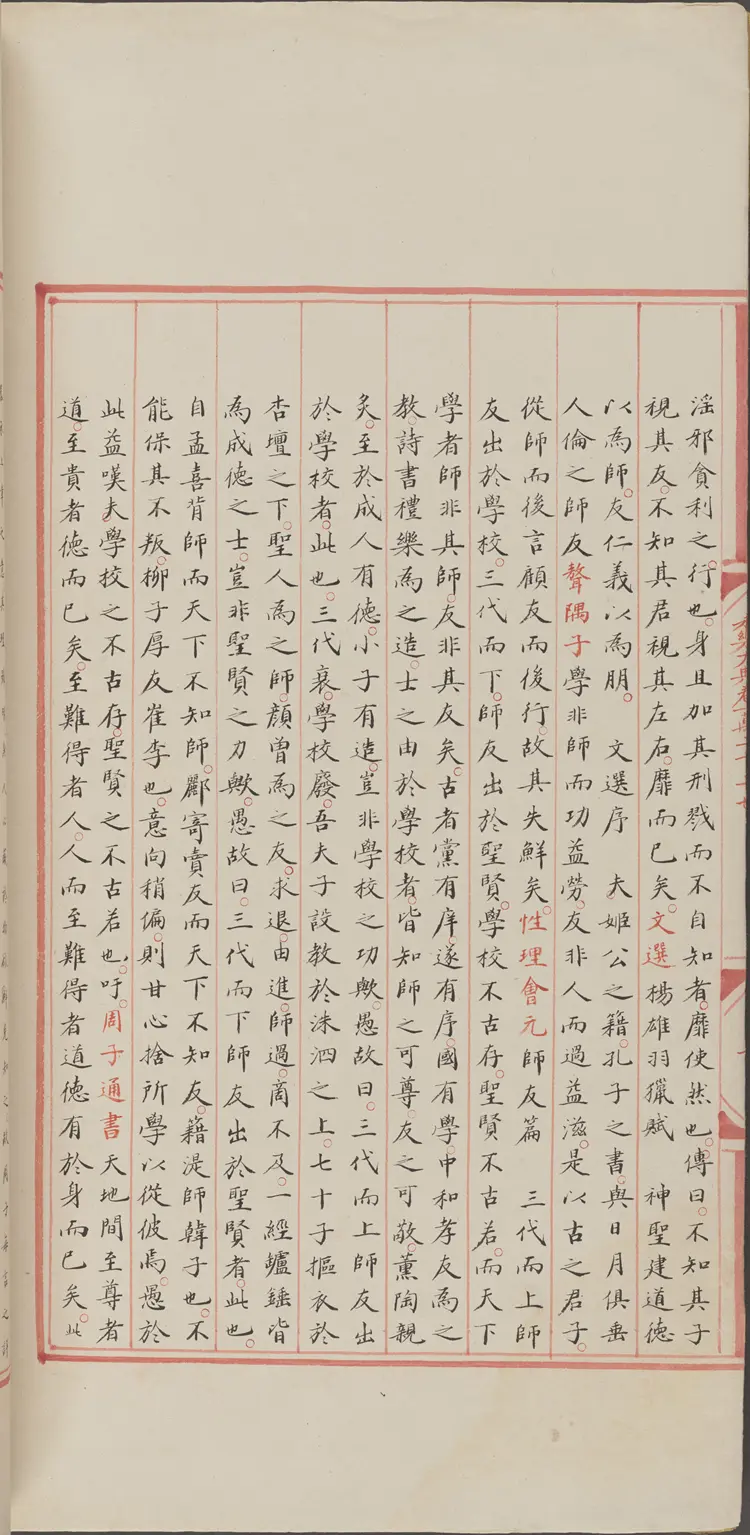 淫邪貪利之行也。身且加其刑戮而不自知者。靡使然也。傳曰。不知其子
視其友。不知其君視其左右。靡而已矣。文選楊雄羽獵賦 神聖建道德
以為師。友仁義以為朋。 文選序 夫姬公之籍。孔子之書。與日月俱垂
人倫之師友聱隅子學非師而功益勞。友非人而過益滋。是以古之君子。
從師而後言顧友而後行。故其失鮮矣。性理會元師友篇 三代而上師
友出於學校。三代而下。師友出於聖賢。學校不古存。聖賢不古若。而天下
學者師非其師。友非其友矣。古者黨有庠。遂有序。國有學。中和孝友為之
教。詩書禮樂為之造。士之由於學校者。皆知師之可尊。友之可敬。薰陶親
炙。至於成人有德。小子有造。豈非學校之功歟。愚故曰。三代而上師友出
於學校者。此也。三代衰。學校廢。吾夫子設教於洙泗之上。七十子摳衣於
杏壇之下。聖人為之師。顏曾為之友。求退。由進。師過。商不及。一經鑪錘皆
為成德之士。豈非聖賢之力歟。愚故曰。三代而下師友出於聖賢者。此也。
自孟喜背師而天下不知師。酈寄賣友而天下不知友。籍湜師韓子也。不
能保其不叛。柳子厚友崔李也。意向稍偏。則甘心捨所學以從彼焉。愚於
此益嘆夫。學校之不古存。聖賢之不古若也。吁。周子通書天地間至尊者
道。至貴者德而已矣。至難得者人。人而至難得者道德有於身而已矣。此